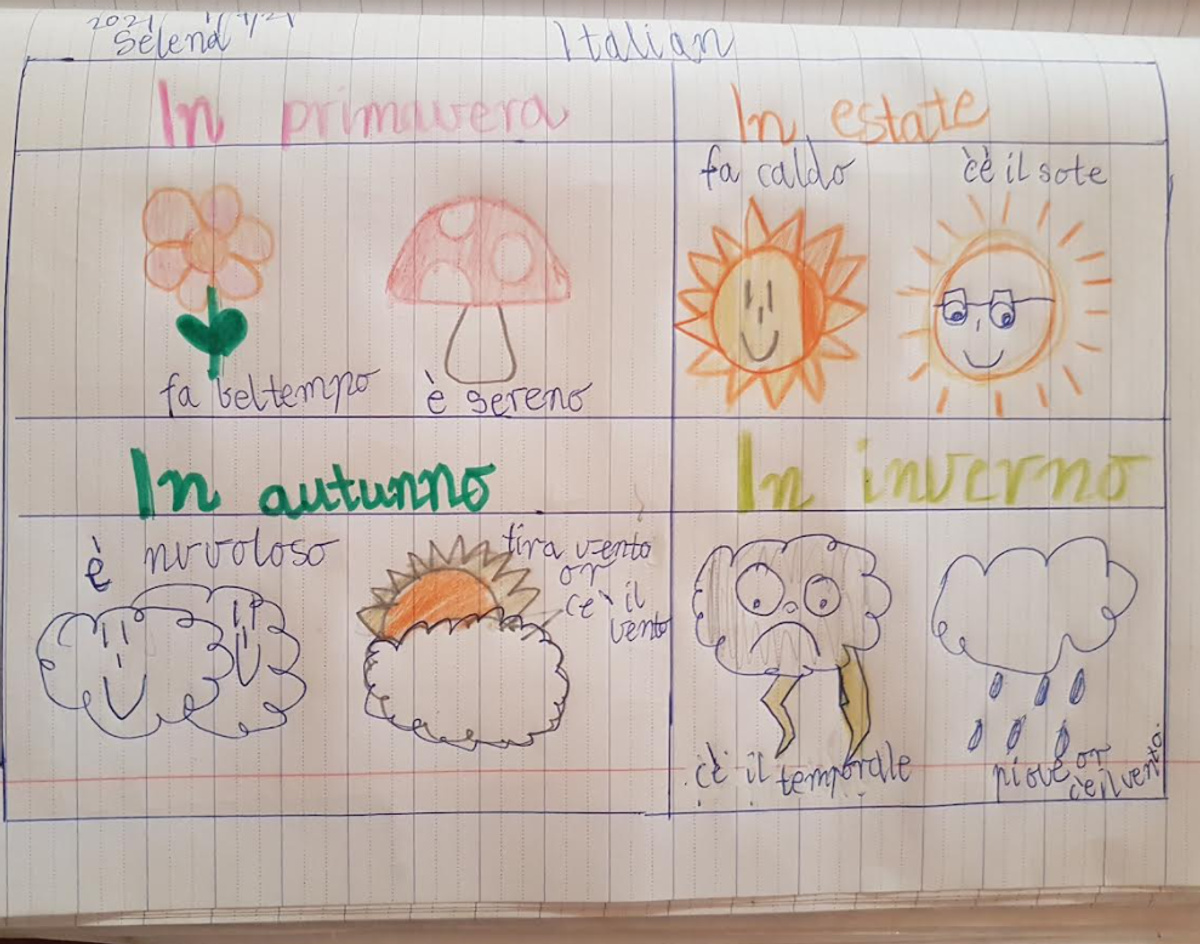 2021
Selena
Italian
In primavera
fa bel tempo
è sereno
In estate
fa caldo
c'è il sole
In autunno
è nuvoloso
tira vento
or
c'è il
vento
In inverno
c'è il temporale
piove or
c'è il vento.